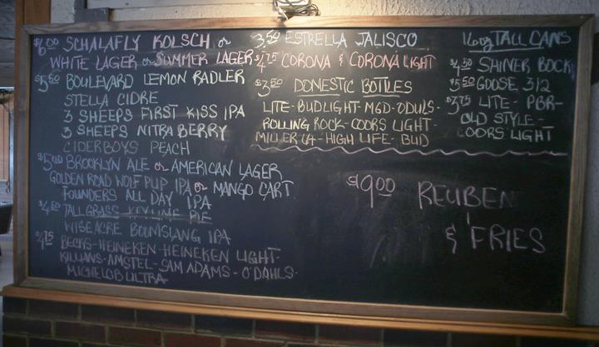 $6.00 SCHALAFLY KOLSCH or
WHITE LAGER or SUMMER LAGER
$5.50 BOULEVARD LEMON RADLER
STELLA CIDRE
3 SHEEPS FIRST KISS IPA
3 SHEEPS NITRA BERRY
CIDERBOYS PEACH
$5.00 BROOKLYN ALE or AMERICAN LAGER
GOLDEN ROAD WOLF PUP IPA or MANGO CART
FOUNDERS ALL DAY IPA
TALLGRASS KEY LIME PIE
WISEACRE IPA
BECKS - HEINEKEN - HEINEKEN LIGHT -
KILLIANS - AMSTEL - SAM ADAMS - O'DOULS -
MICHELOB ULTRA -
3.50 ESTRELLA JALISCO
$4.75 CORONA & CORONA LIGHT
DOMESTIC BOTTLES
LITE - BUDLIGHT - MGD - ODULS -
ROLLING ROCK - COORS LIGHT -
MILLER 64 - HIGH LIFE - BUD
16oz TALL CANS
SHINER BOCK
GOOSE 312
$3.75 LITE - PBR -
OLD STYLE -
COORS LIGHT
$9.00 REUBEN
& FRIES